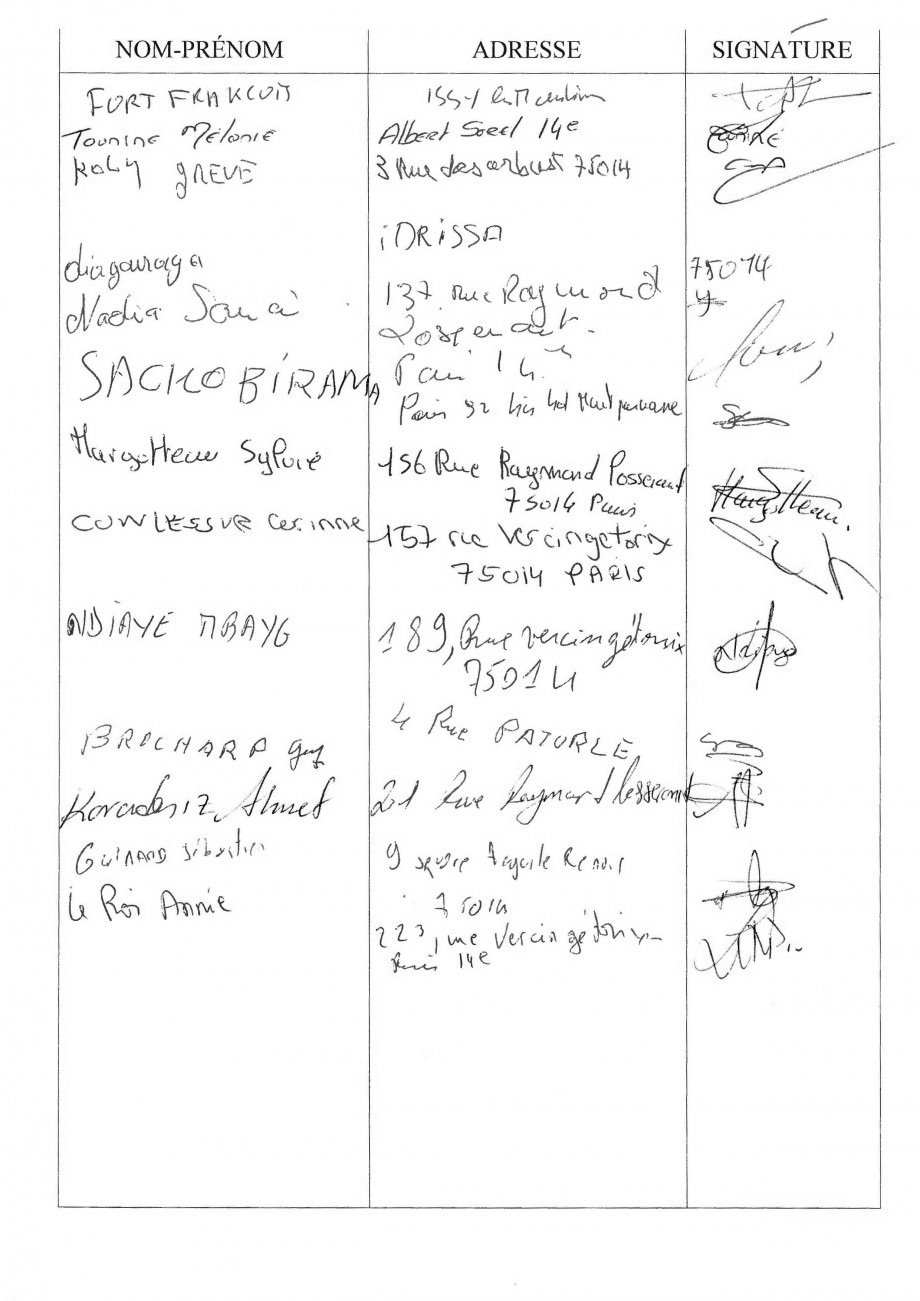 NOM-PRÉNOM ADRESSE SIGNATURE
FORT FRANCOIS ISSY
Tounine Mélanie Albert Sorel 14e
Roky GREVE 3 Rue des arbust 75014
iDRISSA
diagouraga 75014
Nadia 137 rue Raymond
Losserand
SACKO BIRAMA Paris 14è
Paris 92 bis bd Montparnasse
Margotteau Sylvie 156 Rue Raymond Losserand
75014 Paris Margotteau.
Corinne 157 rue Vercingetorix
75014 PARIS
NDIAYE MBAYE 189, Rue vercingétorix Ndiaye
75014
BROCHARD guy 4 Rue PATURLE
Karadeniz Ahmet 201 Rue Raymond Losserand
GUINARD Sébastien 9 square Auguste Renoir
Le Roi Annie 75014
223, rue Vercingétorix
Paris 14e